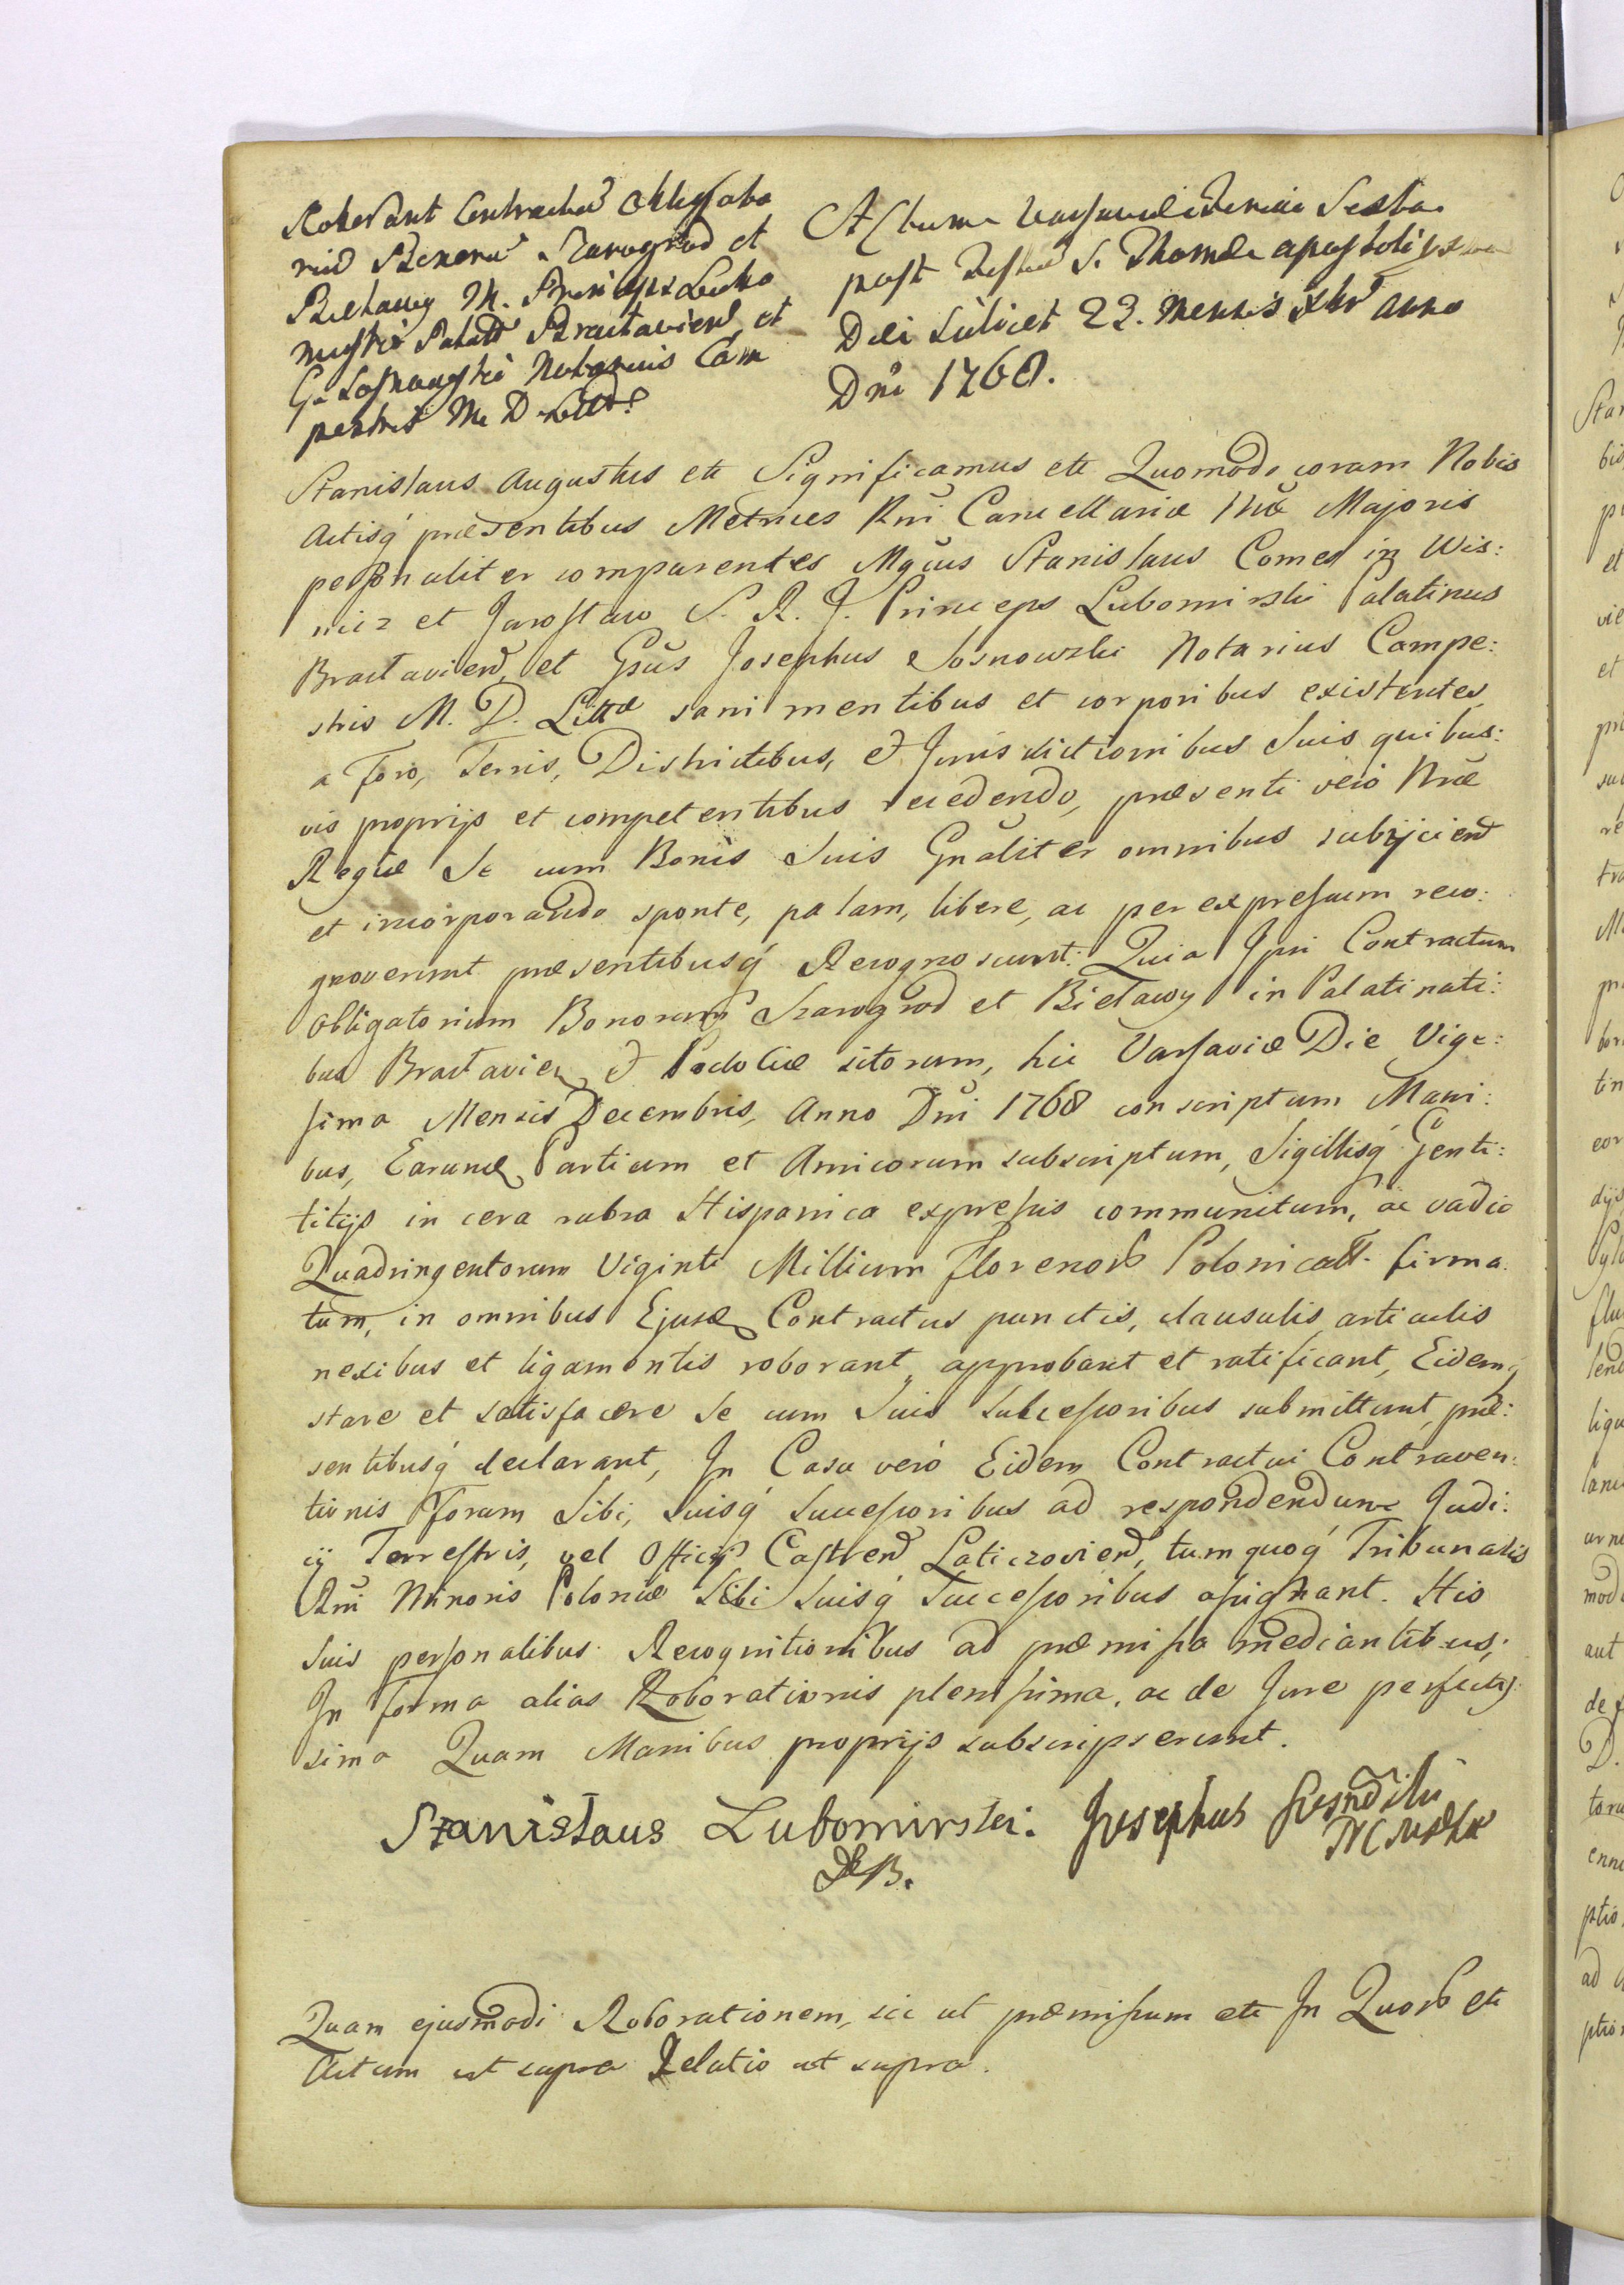 Roborant Contractus obligato
rius Bonorū Szarogrod et
Bietawy M. Princeps Lubo
mirski Palatt Bractavien̄ et
G. Sosnowski Notarius Cam
pestris M. D. Litt.
Actum Varsaviæ Feria Sexta
post Festū S. Thomæ Apostoli ipsa
Die scilicet 23. mensis Xbr̄ Anno
Dn̄i 1768.
Stanislaus Augustus etc Significamus etc Quomodo coram Nobis
Actisq́ præsentibus Metrices Rn̄i Cancellariæ Nr̄æ Majoris
personaliter comparentes Mgc̄us Stanislaus Comes in Wis:
nicz et Jarosław S. R. J. Princeps Lubomirski Palatinus
Bractavien̄, et Gsūs Josephus Sosnowski Notarius Campe:
stris M. D. Littæ sani mentibus et corporibus existentes,
a Foro, Terris, Districtibus, & Jurisdictionibus Suis quibus:
vis proprijs et competentibus recedendo, præsenti verò Nr̄æ
Regiæ Se cum Bonis Suis Gn̄aliter omnibus subijciend
et incorporando sponte, palam, libere, ac per expressum reco:
gnoverunt præsentibusq́ Recognoscunt: Quia Ipsi Contractum
Obligatorium Bonorum Szarogrod et Bietawy in Palatinati:
bus Bractavien & Podoliæ sitorum, hic Varsaviæ Die Vige:
sima Mensis Decembris, Anno Dn̄i 1768 conscriptum Mani:
bus, Earund Partium et Amicorum subscriptum, Sigillisq́ Genti:
litijs in cera rubra Hispanica expressis communitum, ac vadio
Quadringentorum Viginti Millium florenor Polonicall. firma
tum, in omnibus Ejusd Contractus punctis, clausulis articulis
nexibus et ligamentis roborant, approbant et ratificant, Eidemq́
stare et satisfacere Se cum Suis Successoribus submittunt, præ:
sentibusq́ declarant, In Casu verò Eidem Contractui Contraven:
tionis Forum Sibi, Suisq́ Successoribus ad respondendum Judi:
cij Terrestris, vel Officij Castren̄ Laticzovien̄, tum quoq́ Tribunalis
Rn̄i Minoris Poloniæ Sibi Suisq́ Successoribus assignant. His
Suis personalibus Recognitionibus ad præmissa mediantibus;
In forma alias Roborationis plenissima, ac de Jure perfectis
sima Quam Manibus proprijs subscripserunt.
Stanisłaus Lubomirski. Josephus
Quam ejusmodi Roborationem, sic ut præmissum etc In Quor etc
Actum ut supra Relatio ut supra.